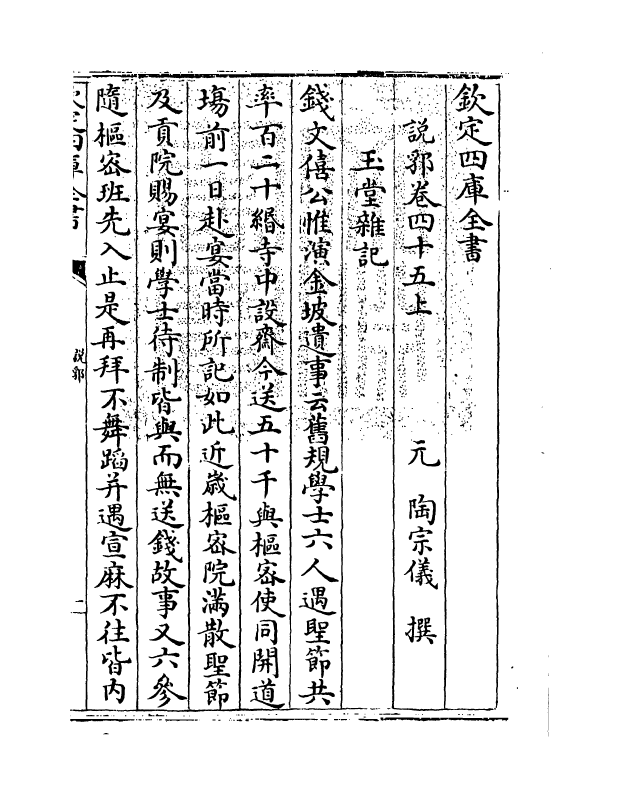 欽定四庫全書
說郛卷四十五上
元 陶宗儀 撰
玉堂雜記
錢文僖公惟演金坡遺事云舊規學士六人遇聖節共
率百二十緡寺中設齋今送五十千與樞宻使同開道
塲前一日赴宴當時所記如此近嵗樞宻院滿散聖節
及貢院賜宴則學士待制皆與而無送錢故事又六參
隨樞宻班先入止是再拜不舞蹈并遇宣麻不往皆内
說郛
二